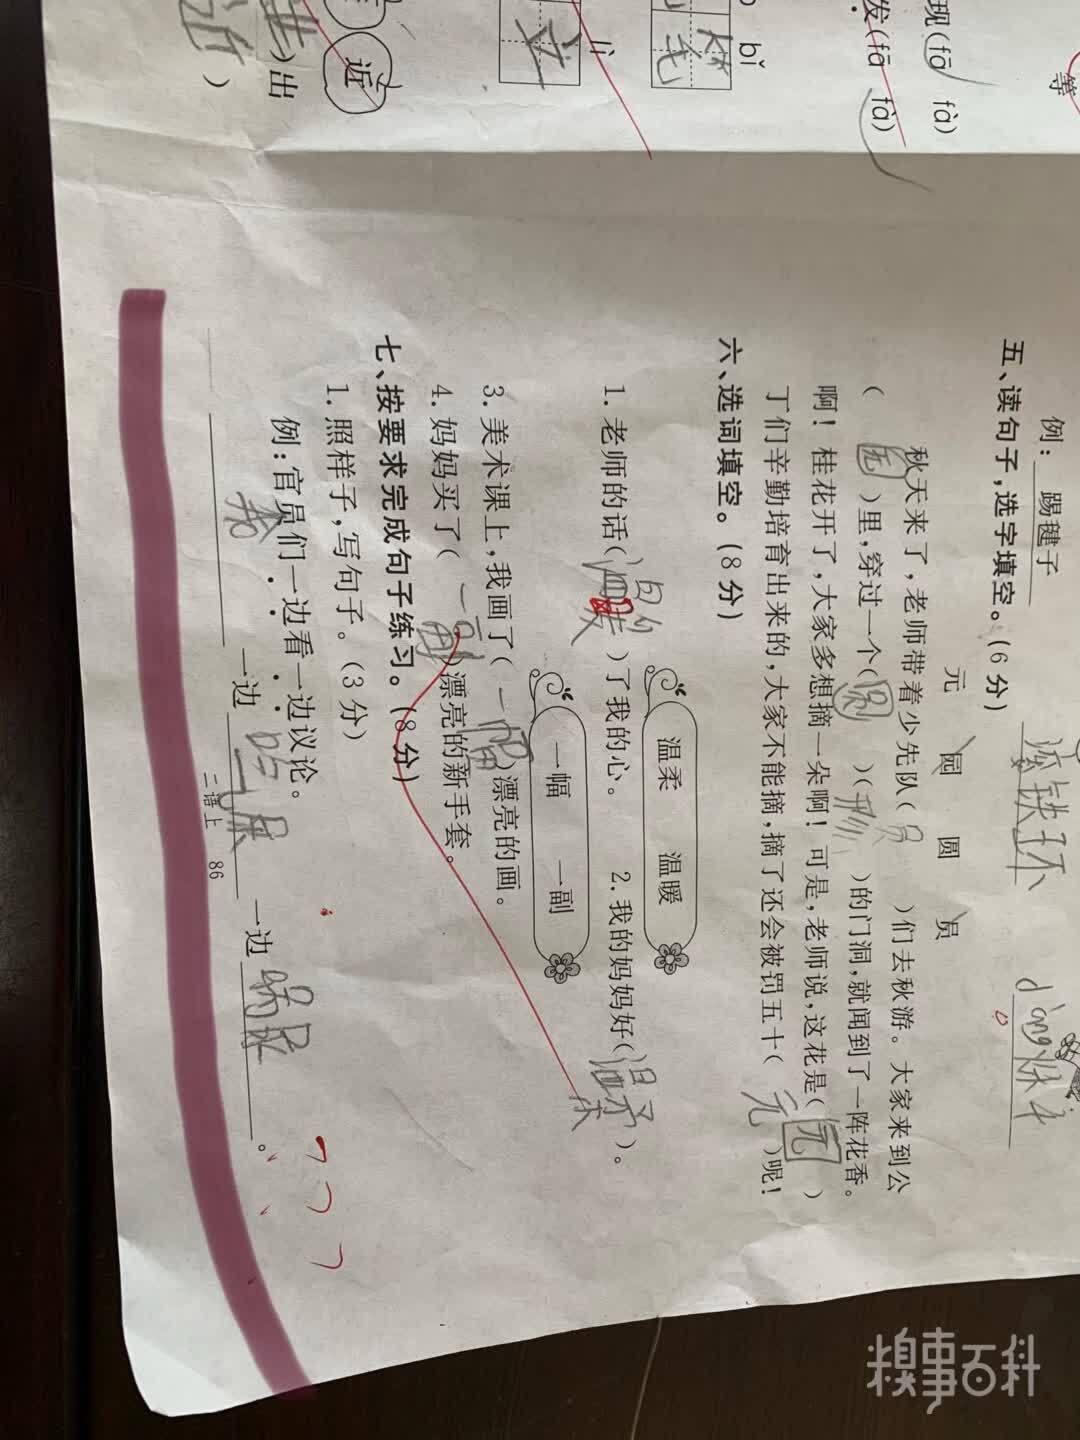 等
现(fā fà)
发(fā fà)
bǐ
笔
lì
立
近
出
近)
例：踢毽子 滚铁环
五、读句子，选字填空。(6分)
元 园 圆 员
秋天来了，老师带着少先队(员)们去秋游。大家来到公
(园)里，穿过一个(圆)(形)的门洞，就闻到了一阵花香。
啊！桂花开了，大家多想摘一朵啊！可是，老师说，这花是(园)
丁们辛勤培育出来的，大家不能摘，摘了还会被罚五十(元)呢！
六、选词填空。(8分)
温柔 温暖
1.老师的话(温暖)了我的心。 2.我的妈妈好(温柔)。
一幅 一副
3.美术课上，我画了(一幅)漂亮的画。
4.妈妈买了(一副)漂亮的新手套。
七、按要求完成句子练习。(8分)
1.照样子，写句子。(3分)
例：官员们一边看一边议论。
一边吃屎一边喝尿。
二语上 86
糗事百科